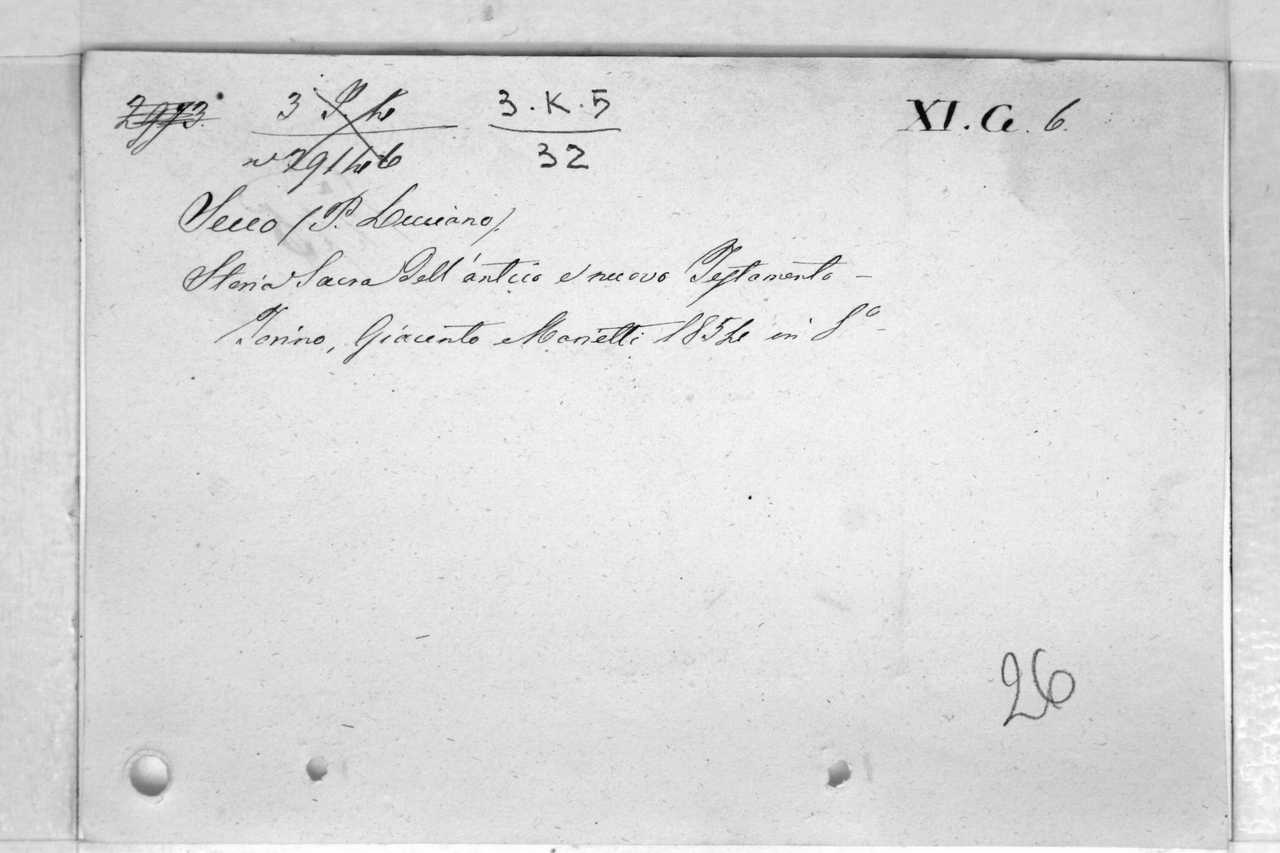 2973. 3 P. 4 3.K.5 XI.G.6.
nº 29146 32
Secco (P. Luciano)
Storia Sacra dell'antico e nuovo Testamento –
Torino, Giacinto Marietti 1854 in 8º
26